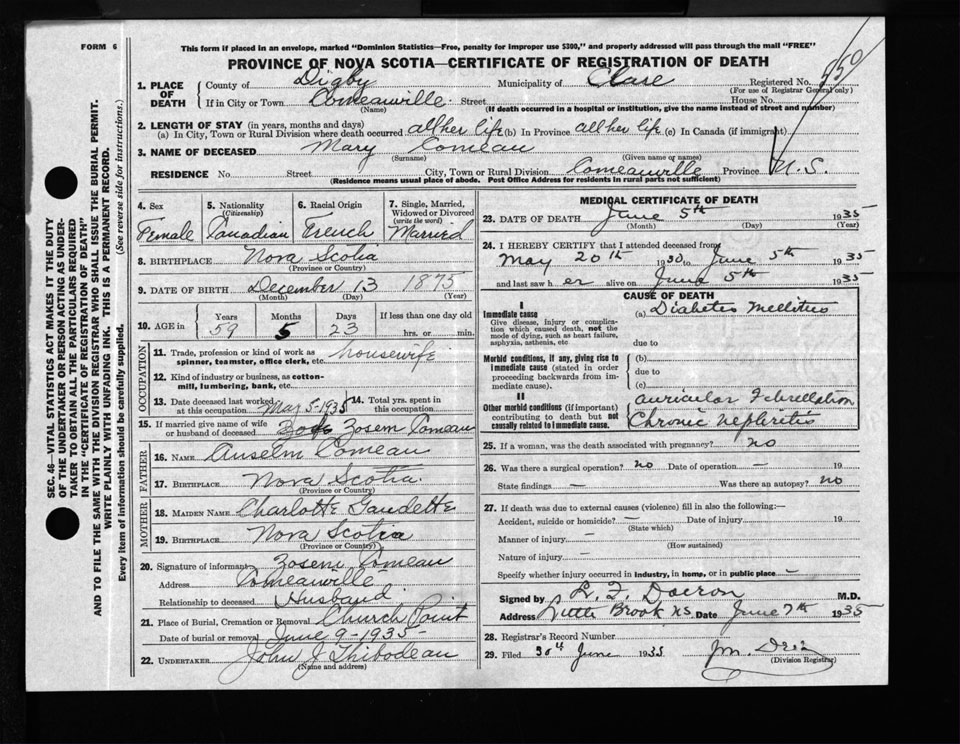 FORM 6
This form if placed in an envelope, marked "Dominion Statistics—Free, penalty for improper use $300," and properly addressed will pass through the mail "FREE"
PROVINCE OF NOVA SCOTIA—CERTIFICATE OF REGISTRATION OF DEATH
1. PLACE OF DEATH County of Digby Municipality of Clare Registered No. 550
(For use of Registrar General only)
If in City or Town Comeauville Street House No.
(Name) (If death occurred in a hospital or institution, give the name instead of street and number)
2. LENGTH OF STAY (in years, months and days)
(a) In City, Town or Rural Division where death occurred all her life (b) In Province all her life (c) In Canada (if immigrant)
3. NAME OF DECEASED Mary Comeau
(Surname) (Given name or names)
RESIDENCE No. Street City, Town or Rural Division Comeauville Province N.S.
(Residence means usual place of abode. Post Office Address for residents in rural parts not sufficient)
4. Sex 5. Nationality (Citizenship) 6. Racial Origin 7. Single, Married, Widowed or Divorced (write the word)
Female Canadian French Married
8. BIRTHPLACE Nova Scotia
(Province or Country)
9. DATE OF BIRTH December 13 1875
(Month) (Day) (Year)
10. AGE in Years Months Days If less than one day old
59 5 23 hrs. or min.
OCCUPATION
11. Trade, profession or kind of work as spinner, teamster, office clerk, etc. housewife
12. Kind of industry or business, as cotton-mill, lumbering, bank, etc.
13. Date deceased last worked at this occupation May 5-1935 14. Total yrs. spent in this occupation
15. If married give name of wife or husband of deceased Zosem Comeau
FATHER
16. NAME Anselm Comeau
17. BIRTHPLACE Nova Scotia.
(Province or Country)
MOTHER
18. MAIDEN NAME Charlotte Gaudette
19. BIRTHPLACE Nova Scotia
(Province or Country)
20. Signature of informant Zosem Comeau
Address Comeauville
Relationship to deceased Husband
21. Place of Burial, Cremation or Removal Church Point
Date of burial or removal June 9-1935-
22. UNDERTAKER John J Thibodeau
(Name and address)
MEDICAL CERTIFICATE OF DEATH
23. DATE OF DEATH June 5th 1935
(Month) (Day) (Year)
24. I HEREBY CERTIFY that I attended deceased from
May 20th 1930 to June 5th 1935
and last saw her alive on June 5th 1935
CAUSE OF DEATH
I
Immediate cause (a) Diabetes Mellitus
Give disease, injury or complication which caused death, not the mode of dying, such as heart failure, asphyxia, asthenia, etc
due to
Morbid conditions, if any, giving rise to immediate cause (stated in order proceeding backwards from immediate cause).
(b)
due to
(c)
II
Other morbid conditions (if important) contributing to death but not causally related to immediate cause.
auricular Febrellation
Chronic Nephritis
25. If a woman, was the death associated with pregnancy? no
26. Was there a surgical operation? no Date of operation — 19
State findings — Was there an autopsy? no
27. If death was due to external causes (violence) fill in also the following:—
Accident, suicide or homicide? — Date of injury 19
(State which)
Manner of injury —
(How sustained)
Nature of injury —
Specify whether injury occurred in industry, in home, or in public place —
Signed by M.D.
Address Little Brook N.S. Date June 7th 1935
28. Registrar's Record Number
29. Filed 30th June 1935
(Division Registrar)
SEC. 46—VITAL STATISTICS ACT MAKES IT THE DUTY
OF THE UNDERTAKER OR PERSON ACTING AS UNDER-
TAKER TO OBTAIN ALL THE PARTICULARS REQUIRED
IN THE "CERTIFICATE OF REGISTRATION OF DEATH"
AND TO FILE THE SAME WITH THE DIVISION REGISTRAR WHO SHALL ISSUE THE BURIAL PERMIT.
WRITE PLAINLY WITH UNFADING INK. THIS IS A PERMANENT RECORD.
Every item of information should be carefully supplied. (See reverse side for instructions.)